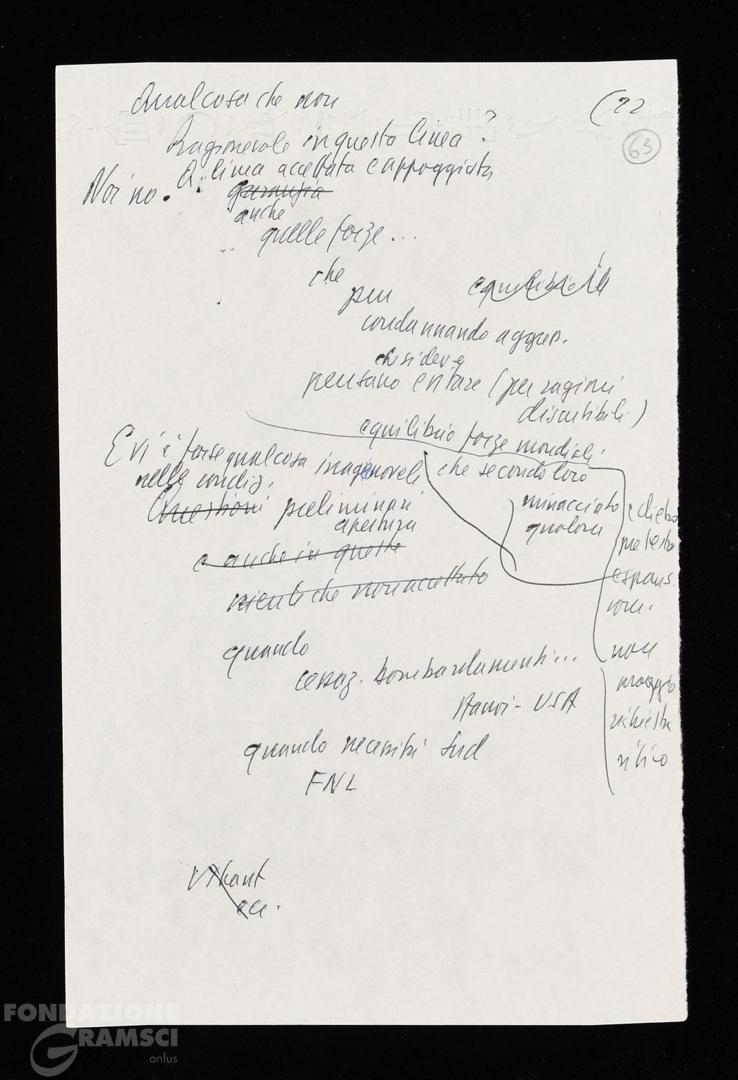 Qualcosa che non
(22
63
Ragionevole in questa linea?
Noi no. È linea accettata e appoggiata
anche
quelle forze...
che
pur equilibri
condannando aggres.
che si deve
pensano evitare (per ragioni
discutibili)
equilibrio forze mondiali
E vi è forse qualcosa inragionevole che secondo loro
nelle condiz.
minacciato
qualora
Questioni preliminari
apertura
dietro
pretesto
e anche in queste
espans
niente che non accettato
quando
non
cessaz. bombardamenti...
Hanoi - USA
richiesta
ritiro
quando necessità Sud
FNL
U Thant
ecc.
FONDAZIONE
GRAMSCI
onlus